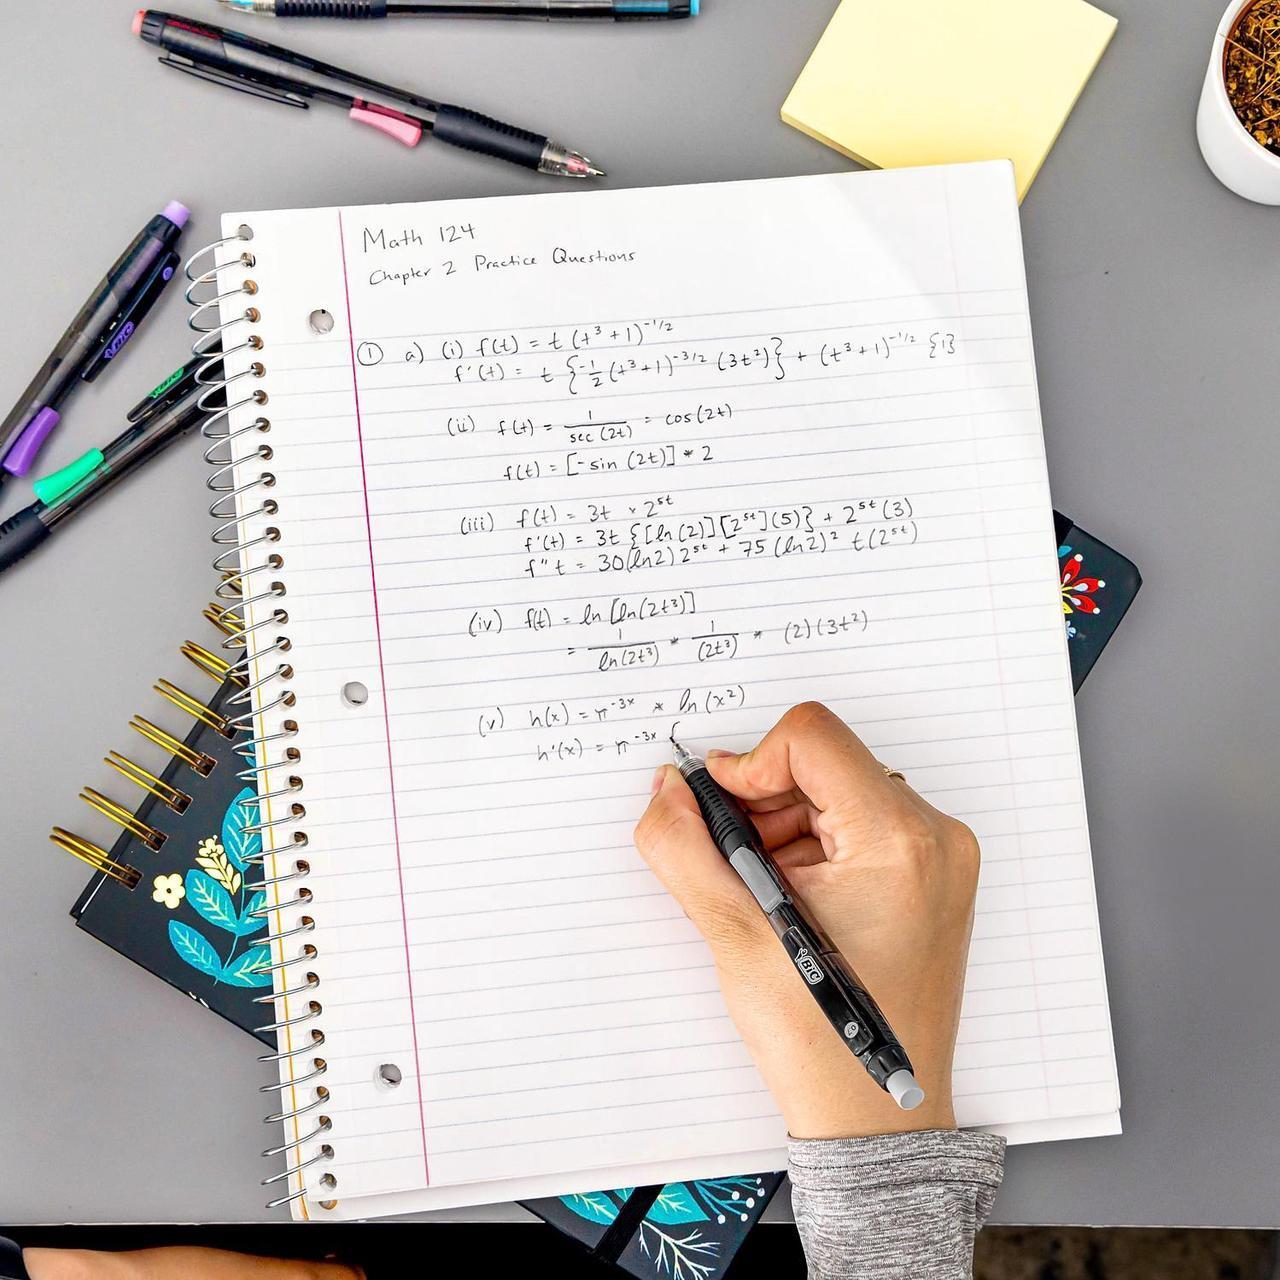 Math 124
Chapter 2 Practice Questions
① a) (i) f(t) = t (t³ + 1)^-1/2
f'(t) = t {-1/2 (t³+1)^-3/2 (3t²)} + (t³+1)^-1/2 {1}
(ii) f(t) = 1/sec(2t) = cos(2t)
f(t) = [-sin (2t)] * 2
(iii) f(t) = 3t × 2^5t
f'(t) = 3t {[ln(2)][2^5t](5)} + 2^5t (3)
f''t = 30(ln2) 2^5t + 75 (ln2)² t(2^5t)
(iv) f(t) = ln [ln(2t³)]
= 1/ln(2t³) * 1/(2t³) * (2)(3t²)
(v) h(x) = π^-3x * ln(x²)
h'(x) = π^-3x {
BIC
BIC